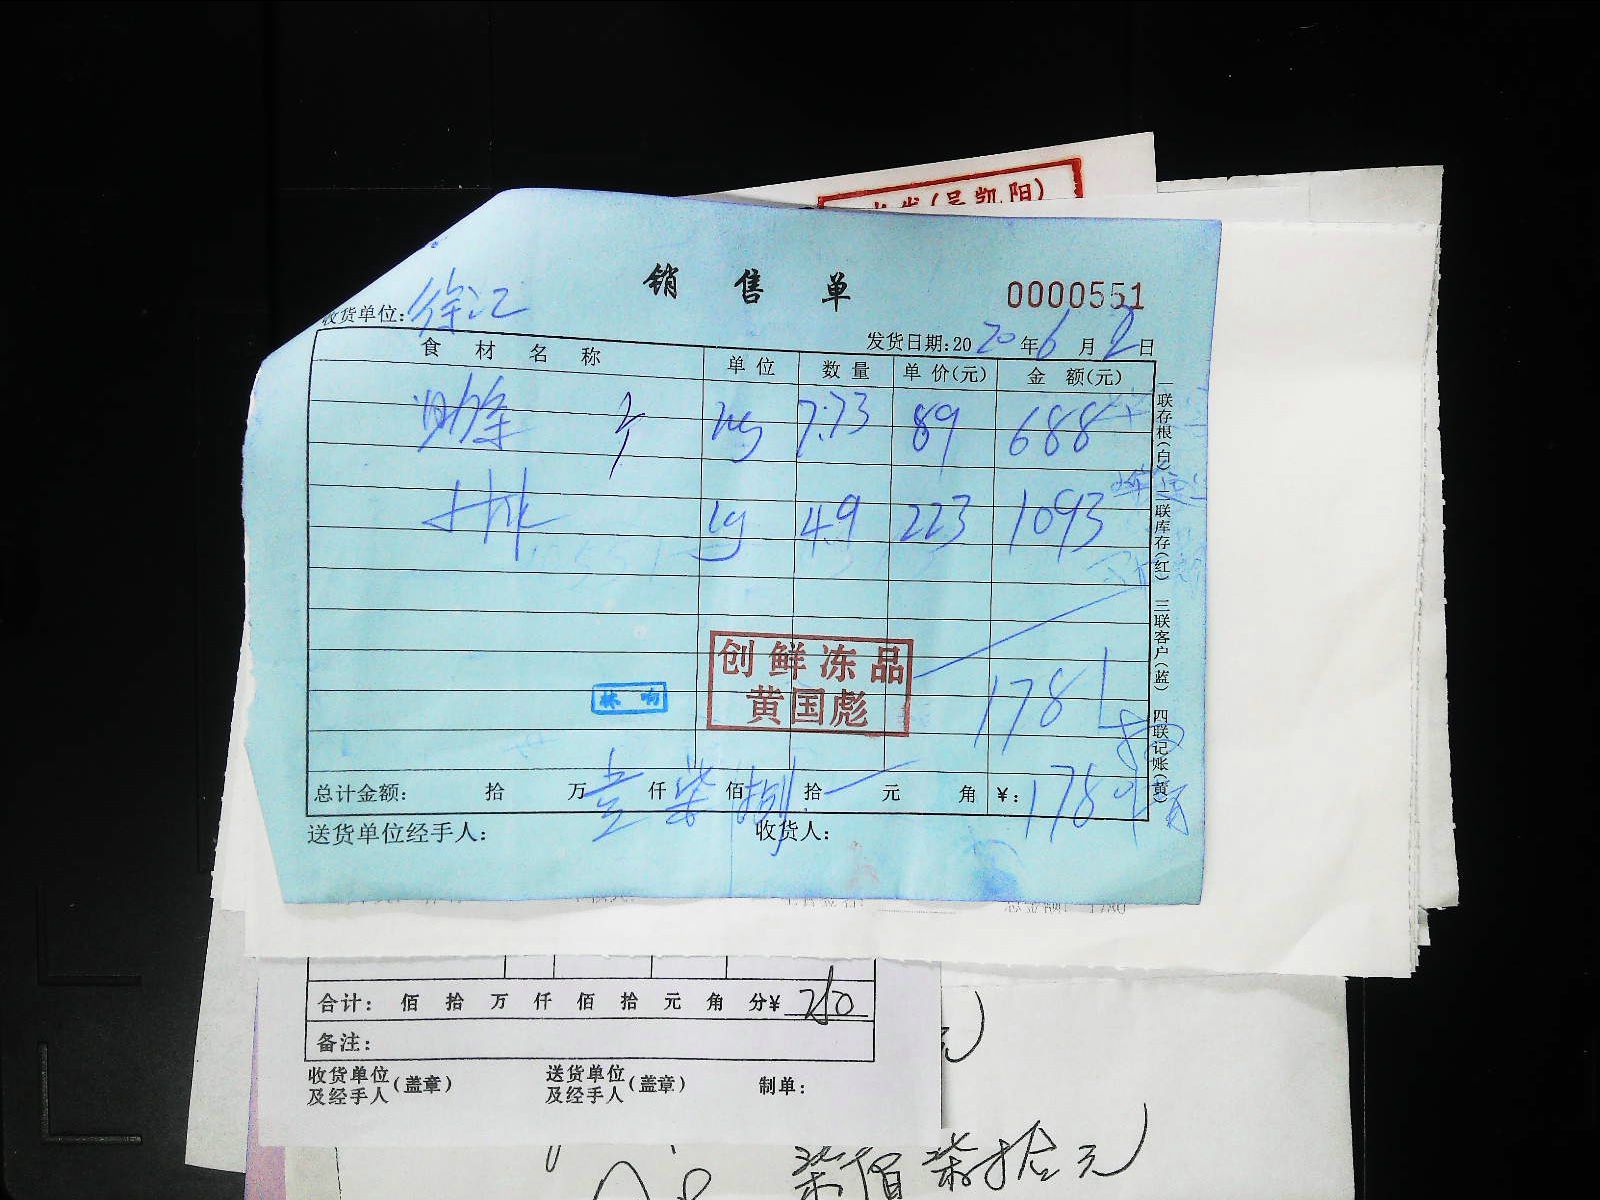 (吴凯阳)
销售单
0000551
收货单位:徐汇
发货日期:2020年6月2日
食材名称 单位 数量 单价(元) 金额(元)
kg 7.73 89 688
kg 4.9 223 1093
一联存根(白) 二联库存(红) 三联客户(蓝) 四联记账(黄)
创鲜冻品
黄国彪
林响
1781
总计金额: 拾 万壹仟柒佰捌拾一元 角 ¥:1781
送货单位经手人: 收货人:
合计: 佰 拾 万 仟 佰 拾 元 角 分¥ 250
备注:
收货单位及经手人(盖章) 送货单位及经手人(盖章) 制单:
柒佰柒拾元